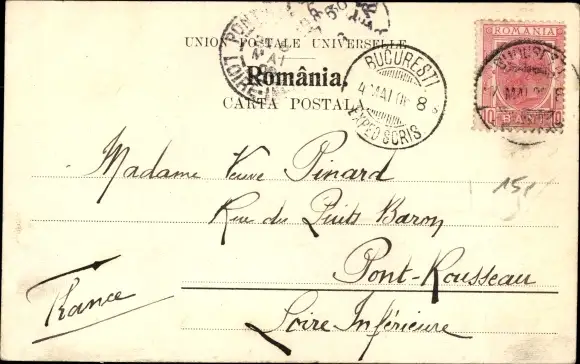 UNION POSTALE UNIVERSELLE
România.
CARTA POSTALA
BUCURESTI
4 MAI
8
EXPED SCRIS
ROMANIA
10 BANI 10
MAI
PONT
MAI
LOIRE
Madame Veuve Pinard
Rue du Puits Baron
Pont-Rousseau
Loire Inférieure
France
15